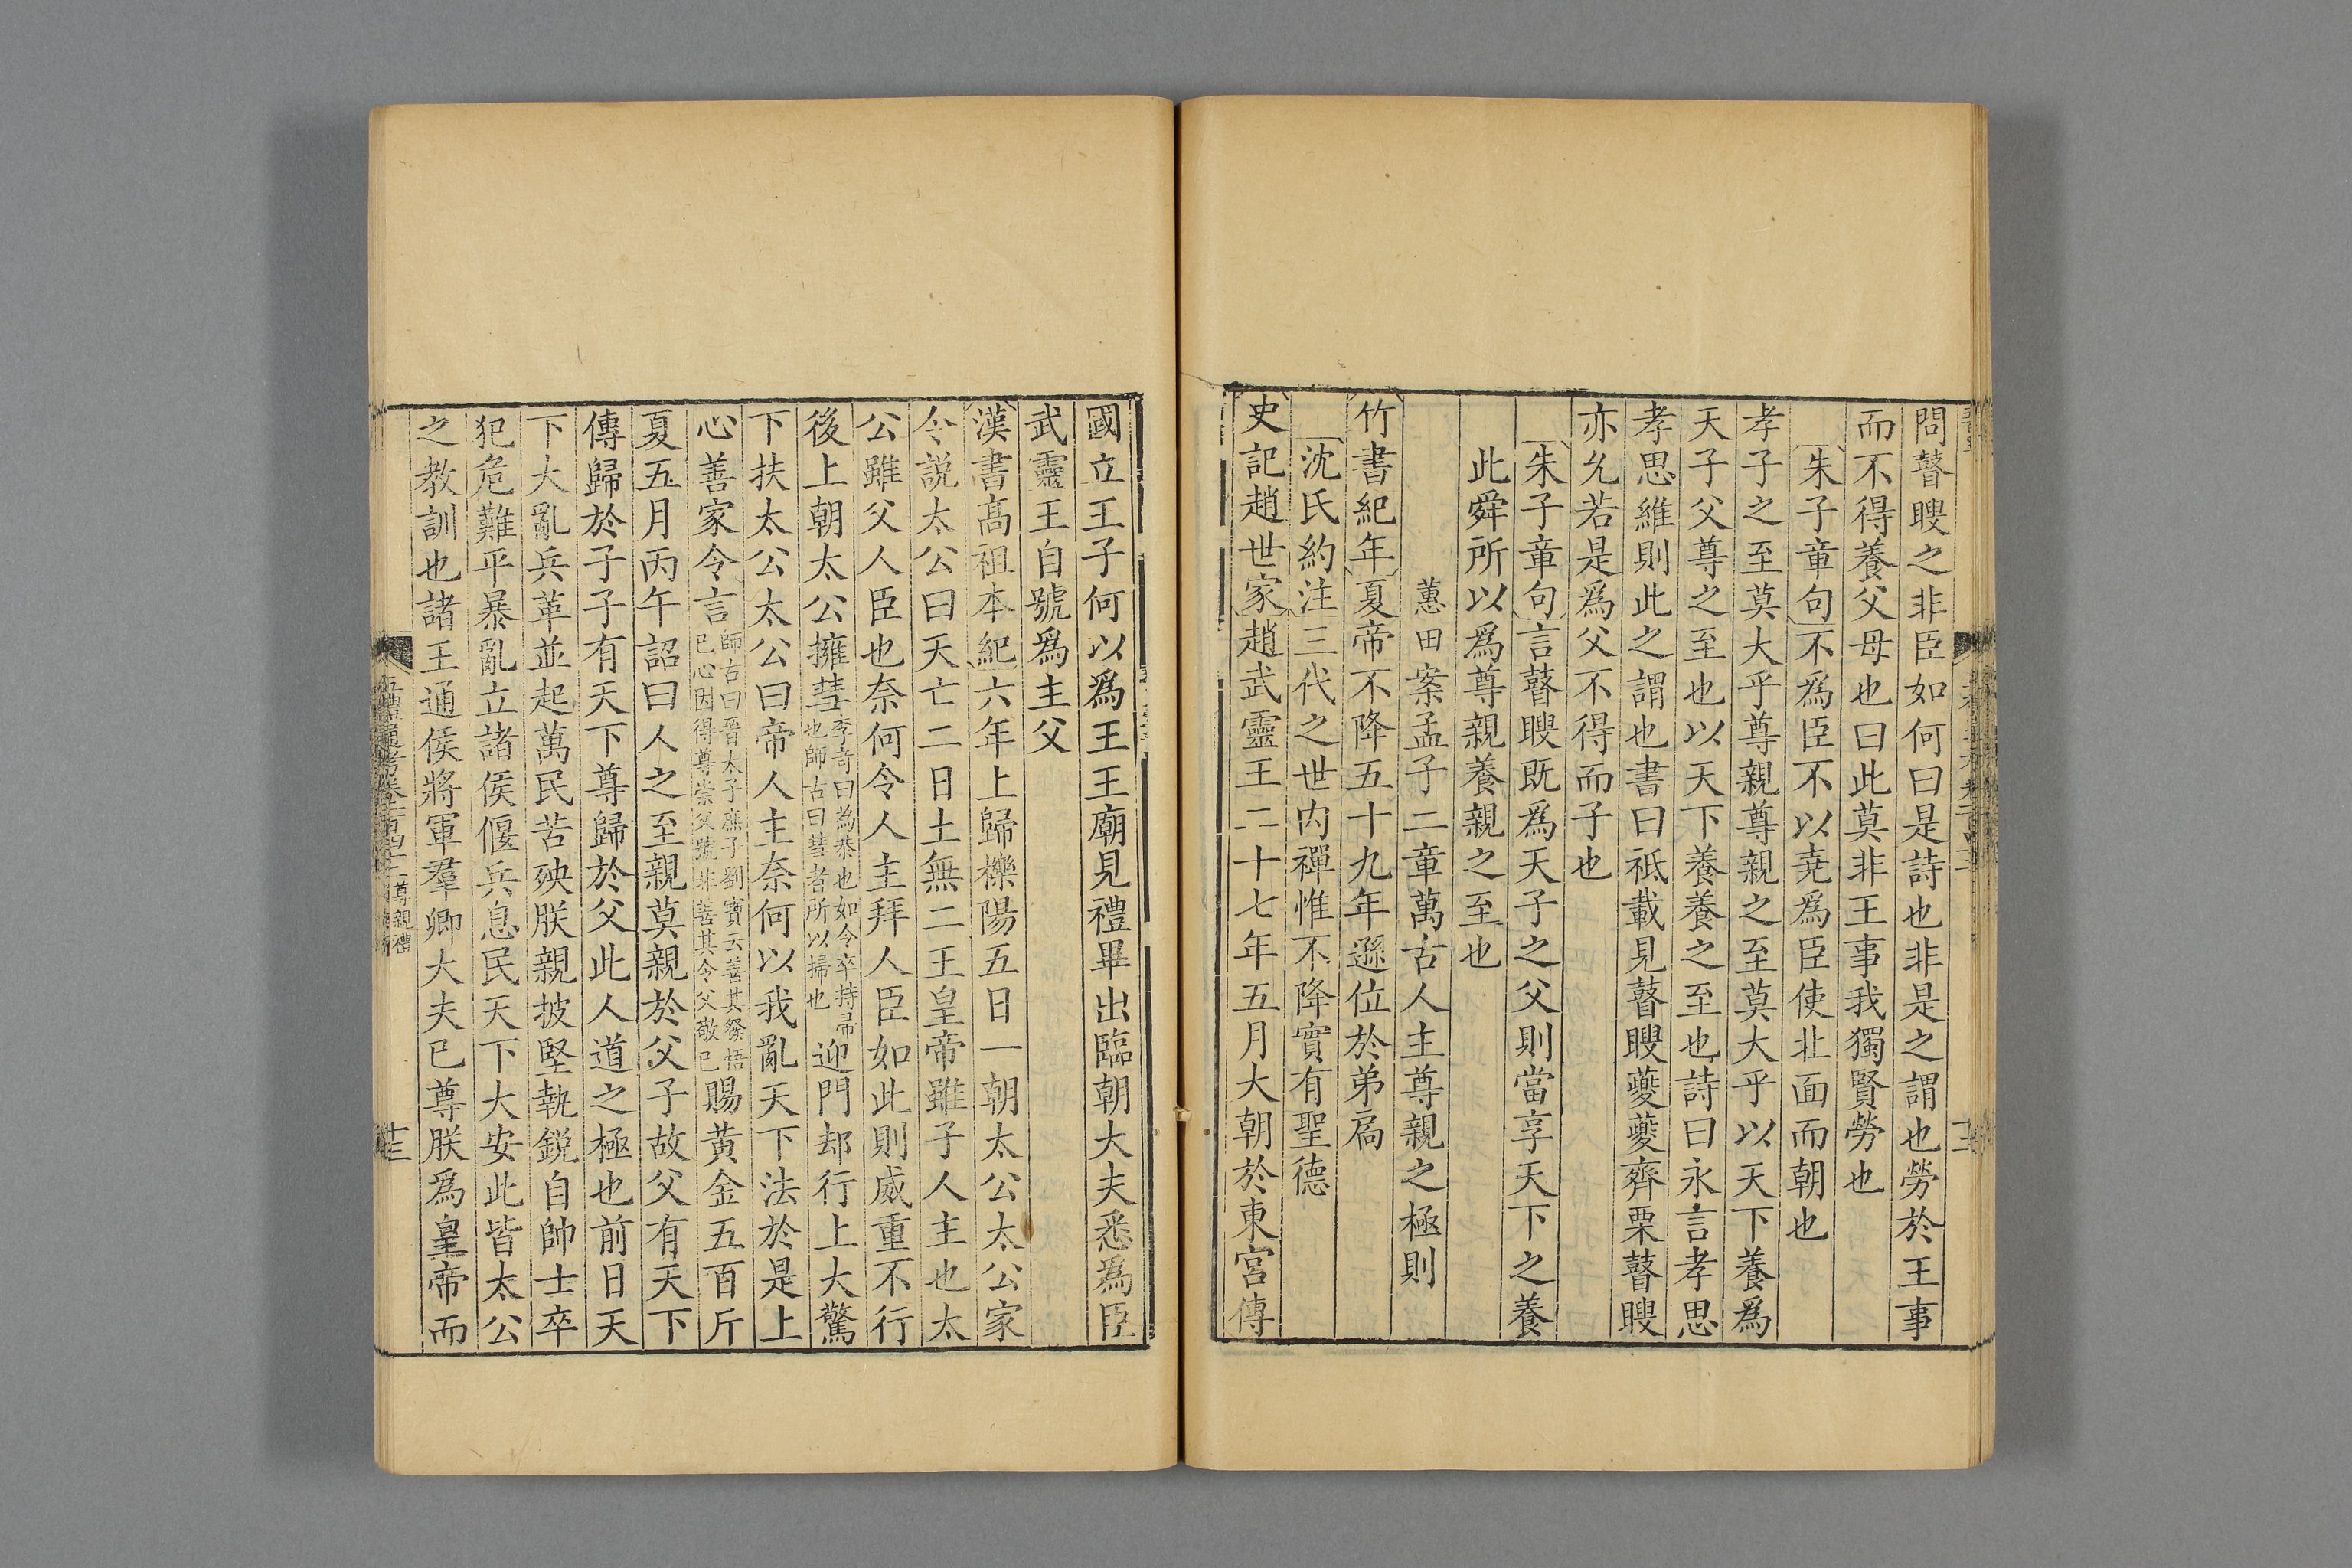 問瞽瞍之非臣如何曰是詩也非是之謂也勞於王事
而不得養父母也曰此莫非王事我獨賢勞也
朱子章句不爲臣不以堯爲臣使北面而朝也
孝子之至莫大乎尊親尊親之至莫大乎以天下養爲
天子父尊之至也以天下養養之至也詩曰永言孝思
孝思維則此之謂也書曰祗載見瞽瞍夔夔齊栗瞽瞍
亦允若是爲父不得而子也
朱子章句言瞽瞍既爲天子之父則當享天下之養
此舜所以爲尊親養親之至也
蕙田案孟子二章萬古人主尊親之極則
竹書紀年夏帝不降五十九年遜位於弟扃
沈氏約注三代之世内禪惟不降實有聖德
史記趙世家趙武靈王二十七年五月大朝於東宮傳
國立王子何以爲王王廟見禮畢出臨朝大夫悉爲臣
武靈王自號爲主父
漢書高祖本紀六年上歸櫟陽五日一朝太公太公家
令說太公曰天亡二日土無二王皇帝雖子人主也太
公雖父人臣也奈何令人主拜人臣如此則威重不行
後上朝太公擁彗李奇曰為恭也如今卒持帚也師古曰彗者所以掃也迎門却行上大驚
下扶太公太公曰帝人主奈何以我亂天下法於是上
心善家令言師古曰晉太子庶子劉寶云善其發悟己心因得尊崇父號非善其令父敬己賜黃金五百斤
夏五月丙午詔曰人之至親莫親於父子故父有天下
傳歸於子子有天下尊歸於父此人道之極也前日天
下大亂兵革並起萬民苦殃朕親披堅執銳自帥士卒
犯危難平暴亂立諸侯偃兵息民天下大安此皆太公
之教訓也諸王通侯將軍羣卿大夫已尊朕爲皇帝而
五禮通考卷 尊親禮
十三